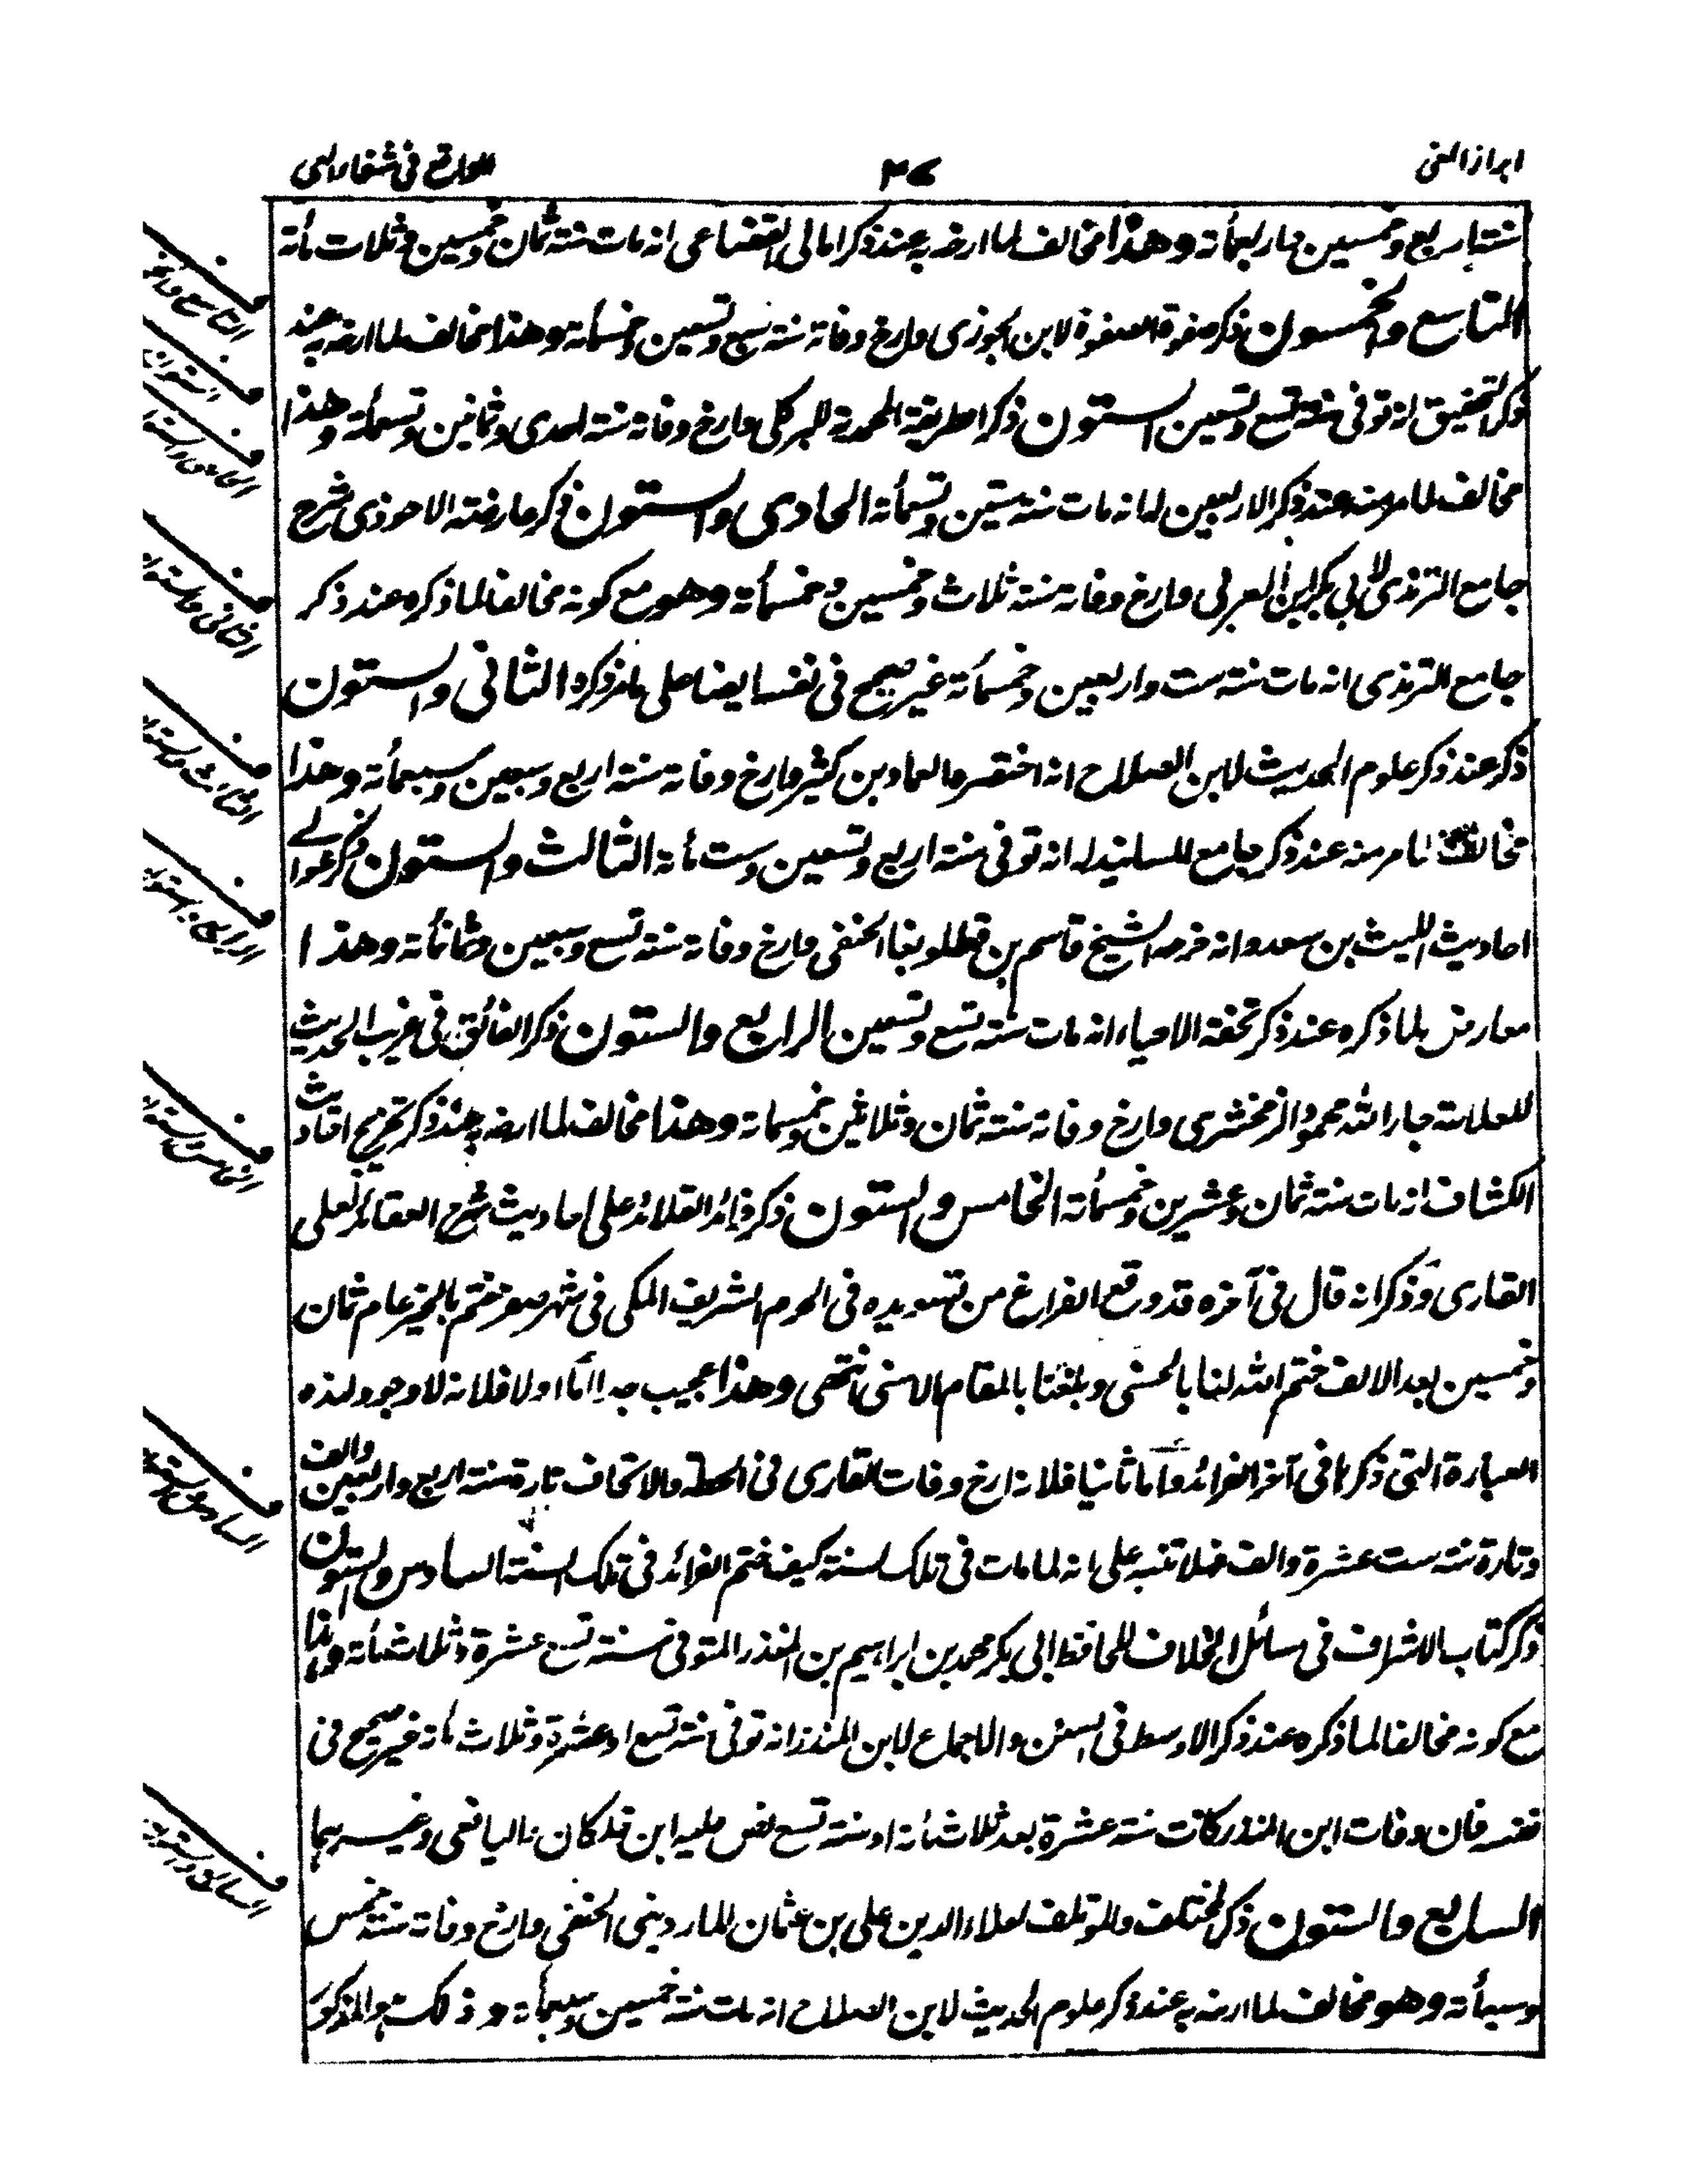 ابراز الغى
٣٤
الواقع في شفاء العى
سنة اربع وخمسين باربعمأة وهذا مخالف لما ارخه به عند ذكر امالى القضاعى انه مات سنة ثمان وخمسين وثلاث مأة
التاسع والخمسون ذكر صفوة الصفوة لابن الجوزى وارخ وفاته سنة سبع وتسعين وخمسمأة وهذا مخالف لما ارخه به عند
ذكر التحقيق انه توفى سنة تسع وتسعين الستون ذكر الطريقة المحمدية للبركلى وارخ وفاته سنة احدى وثمانين وتسعمأة وهذا
مخالف لما مر منه عند ذكر الاربعين له انه مات سنة ستين وتسعمأة الحادى والستون ذكر عارضة الاحوذى شرح
جامع الترمذى لابى بكر ابن العربى وارخ وفاته سنة ثلاث وخمسين وخمسمأة وهو مع كونه مخالفا لما ذكره عند ذكر
جامع الترمذى انه مات سنة ست واربعين وخمسمأة غير صحيح فى نفسه ايضا على ما مر ذكره الثانى والستون
ذكر عند ذكر علوم الحديث لابن الصلاح انه اختصره العماد بن كثير وارخ وفاته سنة اربع وسبعين وسبعمأة وهذا
مخالف لما مر منه عند ذكر جامع المسانيد له انه توفى سنة اربع وتسعين وست مأة الثالث والستون ذكر عوالى
احاديث الليث بن سعد وانه خرجه الشيخ قاسم بن قطلوبغا الحنفى وارخ وفاته سنة تسع وسبعين وثمانمأة وهذا
معارض لما ذكره عند ذكر تحفة الاحياء انه مات سنة تسع وتسعين الرابع والستون ذكر الفائق فى غريب الحديث
للعلامة جار الله محمود الزمخشرى وارخ وفاته سنة ثمان وثلاثين وخمسمأة وهذا مخالف لما ارخه به عند ذكر تخريج احاديث
الكشاف انه مات سنة ثمان وعشرين وخمسمأة الخامس والستون ذكر فرائد القلائد على احاديث شرح العقائد لعلى
القارى وذكر انه قال فى آخره قد وقع الفراغ من تسويده فى الحرم الشريف المكى فى شهر صفر ختم بالخير عام ثمان
وخمسين بعد الالف ختم الله لنا بالحسنى وبلغنا بالمقام الاسنى انتهى وهذا عجيب جدا اما اولا فلانه لا وجود لهذه
العبارة التى ذكرها فى آخر الفرائد واما ثانيا فلانه ارخ وفات القارى فى الحطة والاتحاف تارة سنة اربع واربعين والف
وتارة سنة ست عشرة والف فهلا تنبه على انه لما مات فى تلك السنة كيف ختم الفرائد فى تلك السنة السادس والستون
ذكر كتاب الاشراف فى مسائل الخلاف للحافظ ابى بكر محمد بن ابراهيم بن المنذر المتوفى سنة تسع عشرة وثلاث مأة وهذا
مع كونه مخالفا لما ذكره عند ذكر الاوسط فى السنن والاجماع لابن المنذر انه توفى سنة تسع او عشرة وثلاث مأة غير صحيح فى
نفسه فان وفات ابن المنذر كانت سنة عشرة بعد ثلاث مأة او سنة تسع نص عليه ابن خلكان واليافعى وغيرهما
السابع والستون ذكر المختلف والمؤتلف لعلاء الدين على بن عثمان الماردينى الحنفى وارخ وفاته سنة خمس
وسبعمأة وهو مخالف لما ارخه به عند ذكر علوم الحديث لابن الصلاح انه مات سنة خمسين وسبعمأة وذلك هو المذكور
التاسع والخ
الستون
الحادى والستو
الثانى والستو
الثالث والستو
الرابع والستو
الخامس والستو
السادس والستو
السابع والستو